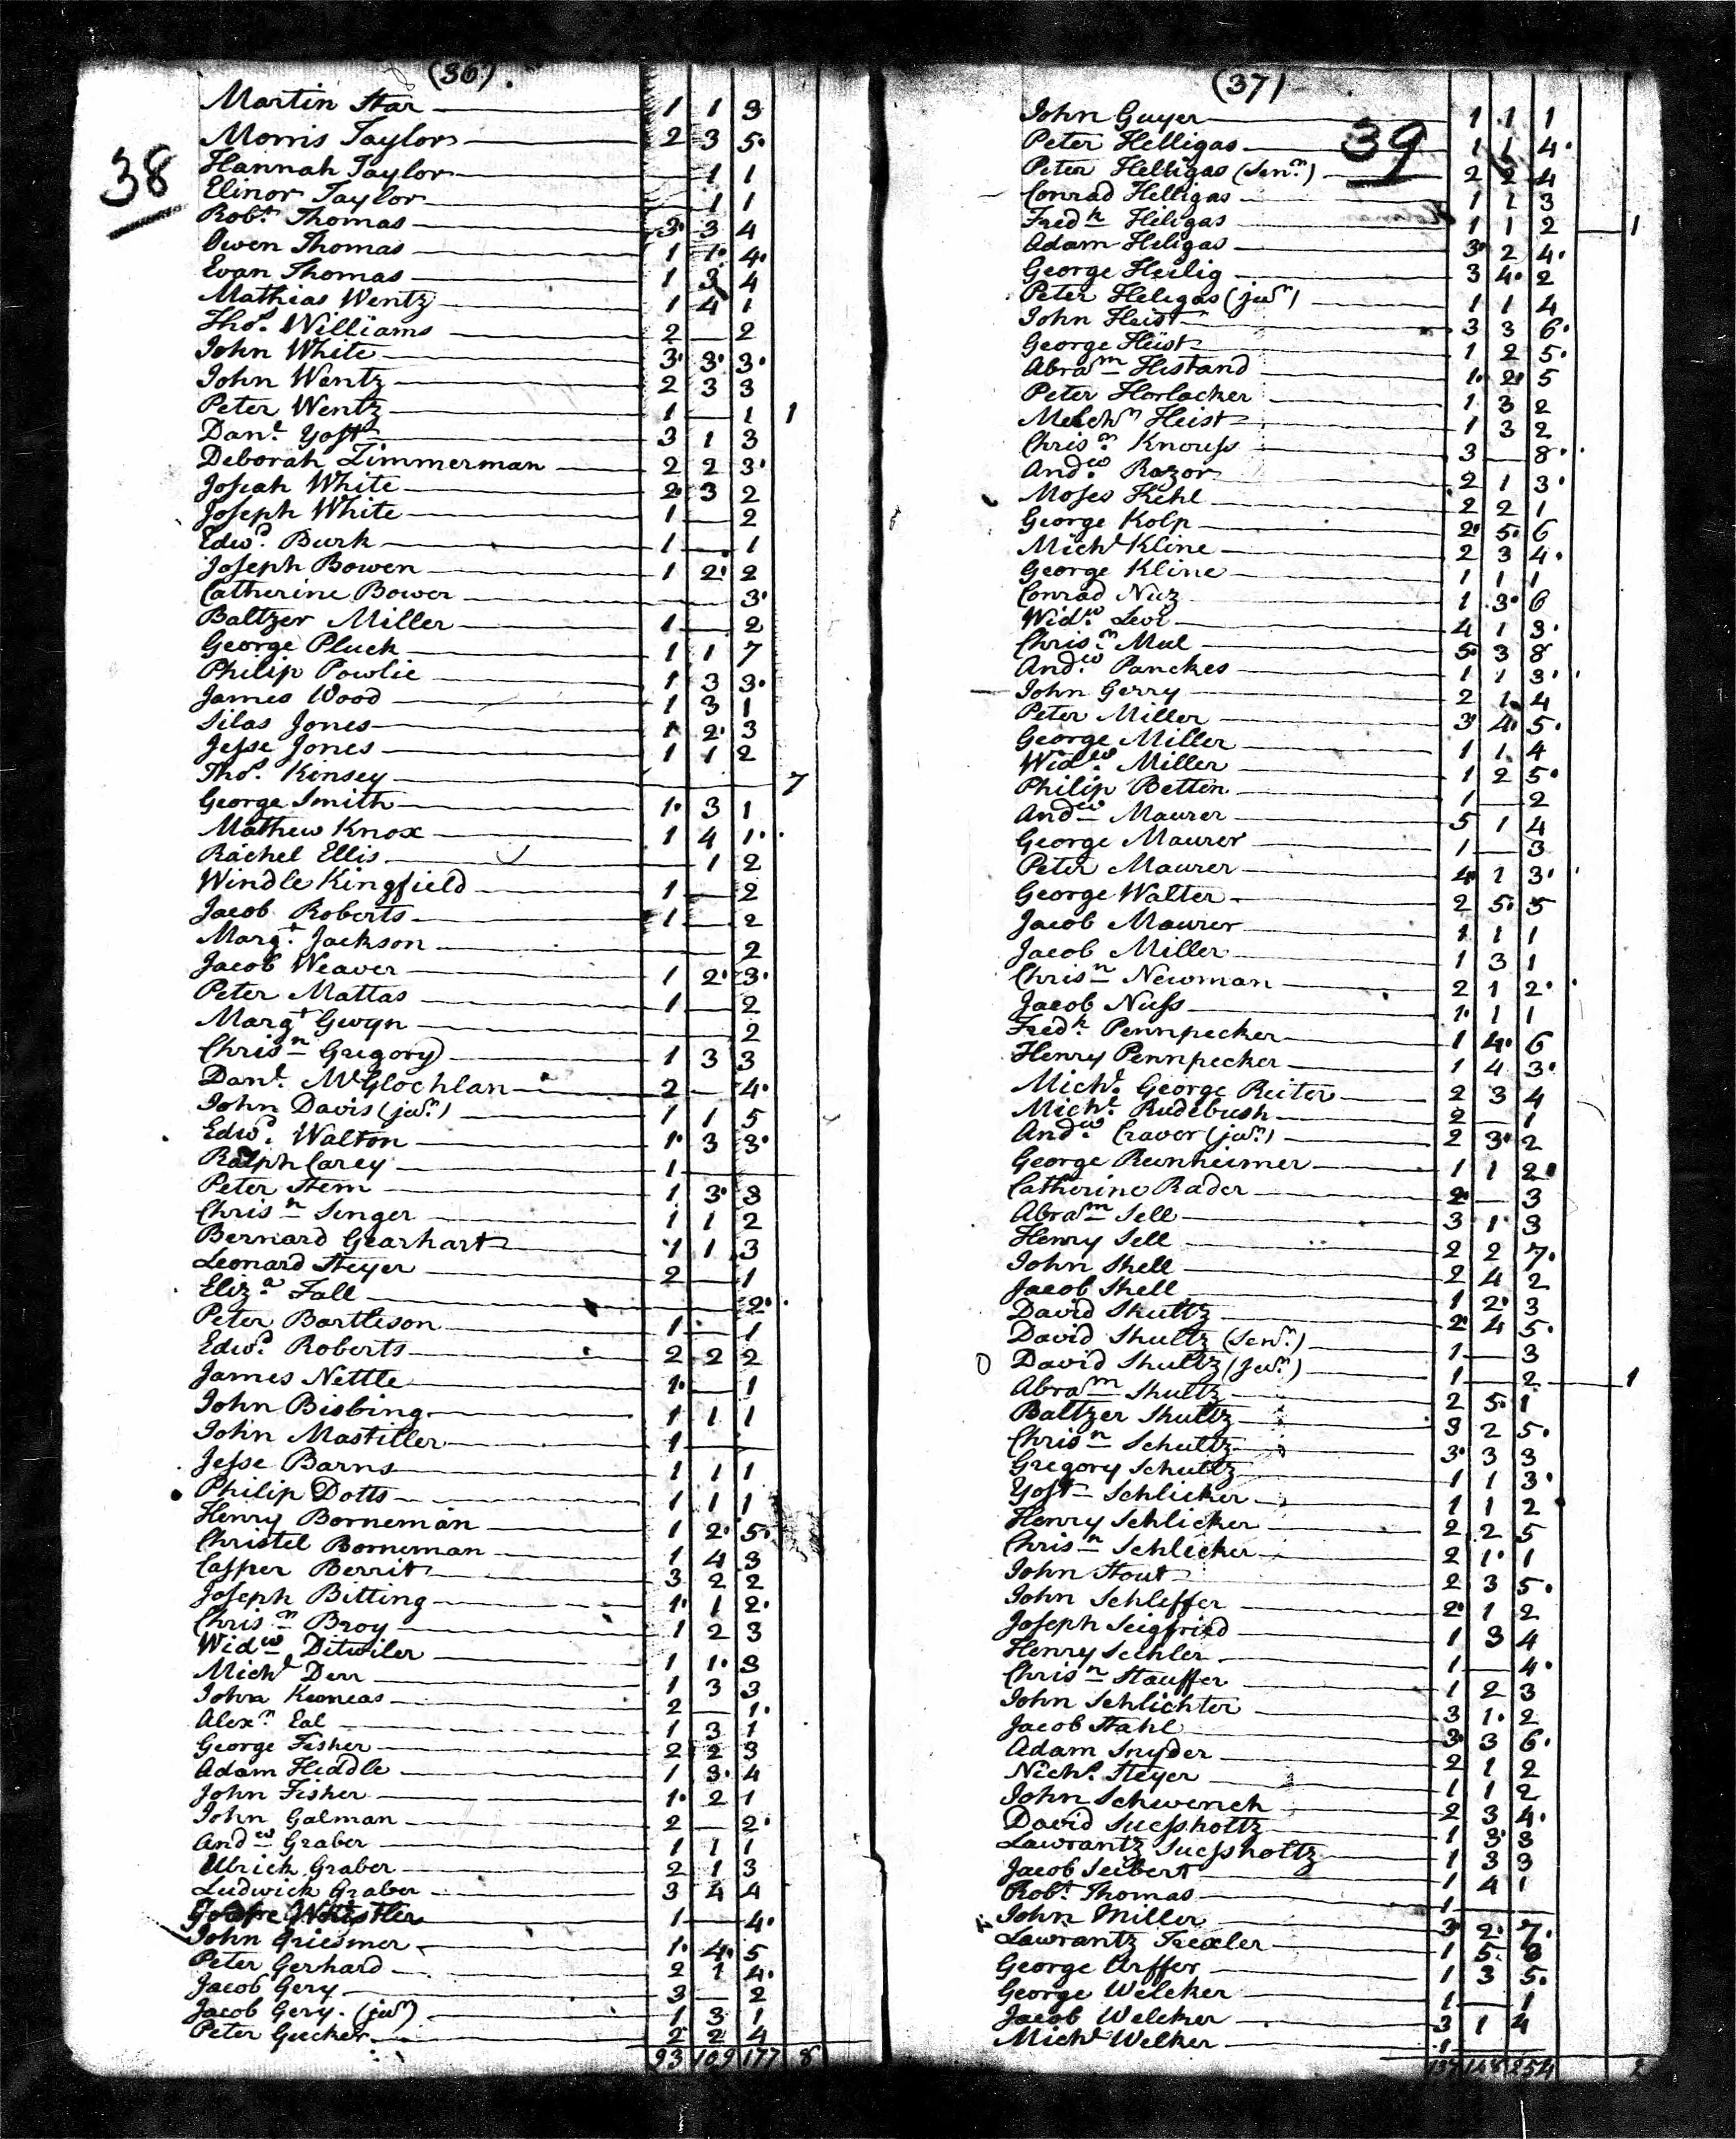 (36)
38
Martin Star 1 1 3
Morris Taylor 2 3 5
Hannah Taylor 1 1
Elinor Taylor 1 1
Robt. Thomas 3 3 4
Owen Thomas 1 1 4
Evan Thomas 1 3 4
Mathias Wentz 1 4 1
Thos. Williams 2 — 2
John White 3 3 3
John Wentz 2 3 3
Peter Wentz 1 — 1 1
Danl. Yost 3 1 3
Deborah Zimmerman 2 2 3
Josiah White 2 3 2
Joseph White 1 — 2
Edwd. Burk 1 — 1
Joseph Bowen 1 2 2
Catherine Bower 3
Baltzer Miller 1 — 2
George Pluck 1 1 7
Philip Powlie 1 3 3
James Wood 1 3 1
Silas Jones 1 2 3
Jesse Jones 1 1 2
Thos. Kinsey 7
George Smith 1 3 1
Mathew Knox 1 4 1
Rachel Ellis 1 2
Windle Kingfield 1 — 2
Jacob Roberts 1 — 2
Margt. Jackson 2
Jacob Weaver 1 2 3
Peter Mattas 1 — 2
Margt Gwyn 2
Chrisn Gregory 1 3 3
Danl. McGlochlan 2 — 4
John Davis (junr.) 1 1 5
Edwd. Walton 1 3 3
Ralph Carey 1
Peter Stem 1 3 3
Chrisn Singer 1 1 2
Bernard Gearhart 1 1 3
Leonard Steyer 2 — 1
Eliza Fall 2
Peter Bartleson 1 — 1
Edwd. Roberts 2 2 2
James Nettle 1 — 1
John Bisbing 1 1 1
John Mastiller 1
Jesse Barns 1 1 1
Philip Dotts 1 1 1
Henry Borneman 1 2 5
Christel Borneman 1 4 3
Casper Berrit 3 2 2
Joseph Bitting 1 1 2
Chrisn Broy 1 2 3
Widw Ditwiler 1 1 3
Michl Derr 1 3 3
John Keoneas 2 — 1
Alexr. Eal 1 3 1
George Fisher 2 2 3
Adam Hiddle 1 3 4
John Fisher 1 2 1
John Galman 2 — 2
Andw Graber 1 1 1
Ulrick Graber 2 1 3
Ludwick Graber 3 4 4
1 — 4
John Griesmer 1 4 5
Peter Gerhard 2 1 4
Jacob Gery 3 — 2
Jacob Gery (junr) 1 3 1
Peter Gucker 2 2 4
93 109 177 8
(37)
39
John Guyer 1 1 1
Peter Helligas 1 1 4
Peter Helligas (Senr.) 2 2 4
Conrad Helligas 1 1 3
Fredk Heligas 1 1 2 — 1
Adam Heligas 3 2 4
George Heilig 3 4 2
Peter Heligas (junr) 1 1 4
John Heist 3 3 6
George Heist 1 2 5
Abram Hestand 1 2 5
Peter Horlacker 1 3 2
Melchr Heist 1 3 2
Chrisn. Knouss 3 — 8
Andw. Razor 2 1 3
Moses Kehl 2 2 1
George Kolp 2 5 6
Michl Kline 2 3 4
George Kline 1 1 1
Conrad Nuz 1 3 6
Widw. Levi 4 1 3
Chrisn. Mul 5 3 8
Andw. Panckes 1 1 3
John Gerry 2 1 4
Peter Miller 3 4 5
George Miller 1 1 4
Widw. Miller 1 2 5
Philip Betten 1 — 2
Andw Maurer 5 1 4
George Maurer 1 — 3
Peter Maurer 4 1 3
George Walter 2 5 5
Jacob Maurer 1 1 1
Jacob Miller 1 3 1
Chrisn Newman 2 1 2
Jacob Nuss 1 1 1
Fredk. Pennpecker 1 4 6
Henry Pennpecker 1 4 3
Michl. George Reiter 2 3 4
Michl. Rudebush 2 — 1
Andw. Craver (junr) 2 3 2
George Reinheimer 1 1 2
Catherine Rader 2 — 3
Abram Sell 3 1 3
Henry Sell 2 2 7
John Shell 2 4 2
Jacob Shell 1 2 3
David Shultz 2 4 5
David Shultz (Senr.) 1 — 3
David Shultz (junr.) 1 — 2 — 1
Abram Shultz 2 5 1
Baltzer Shultz 3 2 5
Chrisn Schultz 3 3 3
Gregory Schultz 1 1 3
Yost Schlicker 1 1 2
Henry Schlicker 2 2 5
Chrisn Schlicker 2 1 1
John Stout 2 3 5
John Schleffer 2 1 2
Joseph Seigfried 1 3 4
Henry Sechler 1 — 4
Chrisn Stauffer 1 2 3
John Schlichter 3 1 2
Jacob Stahl 3 3 6
Adam Snyder 2 1 2
Nichs. Steyer 1 1 2
John Schwenck 2 3 4
David Suessholtz 1 3 3
Lawrantz Suessholtz 1 3 3
Jacob Seibert 1 4 1
Robt. Thomas 1
John Miller 3 2 7
Lawrantz Trexler 1 5 3
George Urffer 1 3 5
George Welcker 1 — 1
Jacob Welcker 3 1 4
Michl Welker 1
137 148 254 2